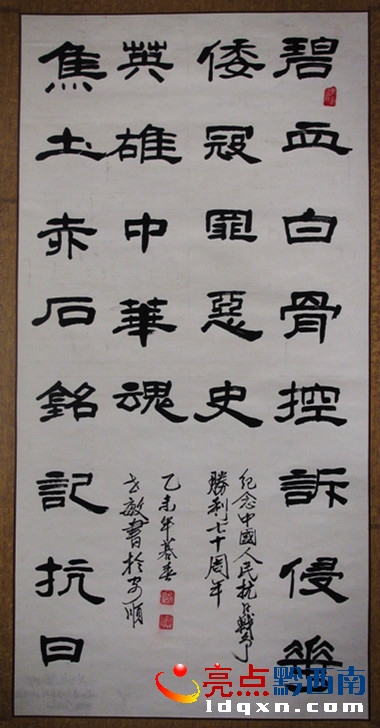 碧血白骨控訴侵華
倭寇罪惡史
纪念中國人民抗日戰爭
勝利七十周年
焦土赤石銘記抗日
英雄中華魂
乙未年暮春
敏書於安順
亮点黔西南
ldqxn.com